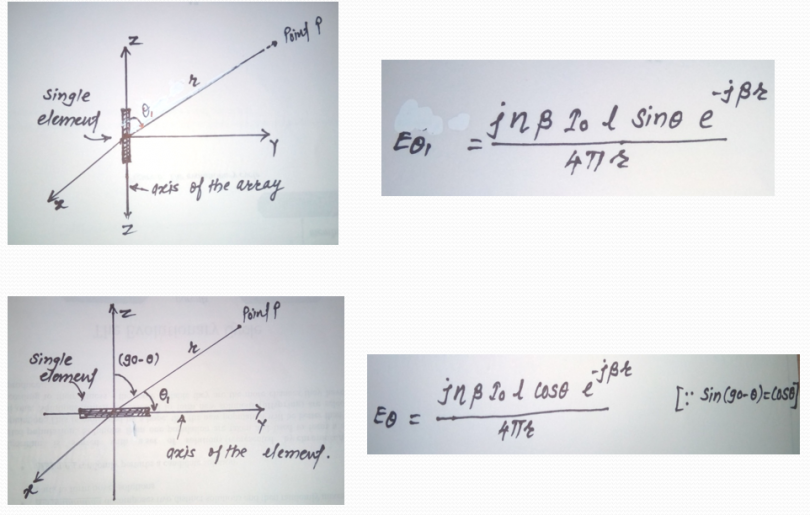 Z
Point P
r
Single
element
θ₁
Y
axis of the array
x
Z
Eθ₁ = jηβ I₀ l sinθ e^-jβr
4πr
Z
Point P
Single
element
(90-θ)
r
θ₁
Y
axis of the element.
x
Eθ = jηβ I₀ l cosθ e^-jβr
4πr
[∵ Sin(90-θ)=cosθ]